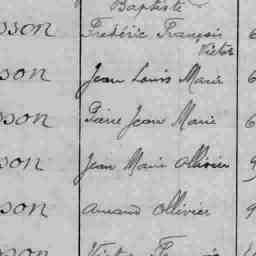 Baptiste
sson Frédéric François 6
Victor
son Jean Louis Marie 6
son Pierre Jean Marie 6
son Jean Marie Ollivier 9
son Amand Ollivier 9
son Victor